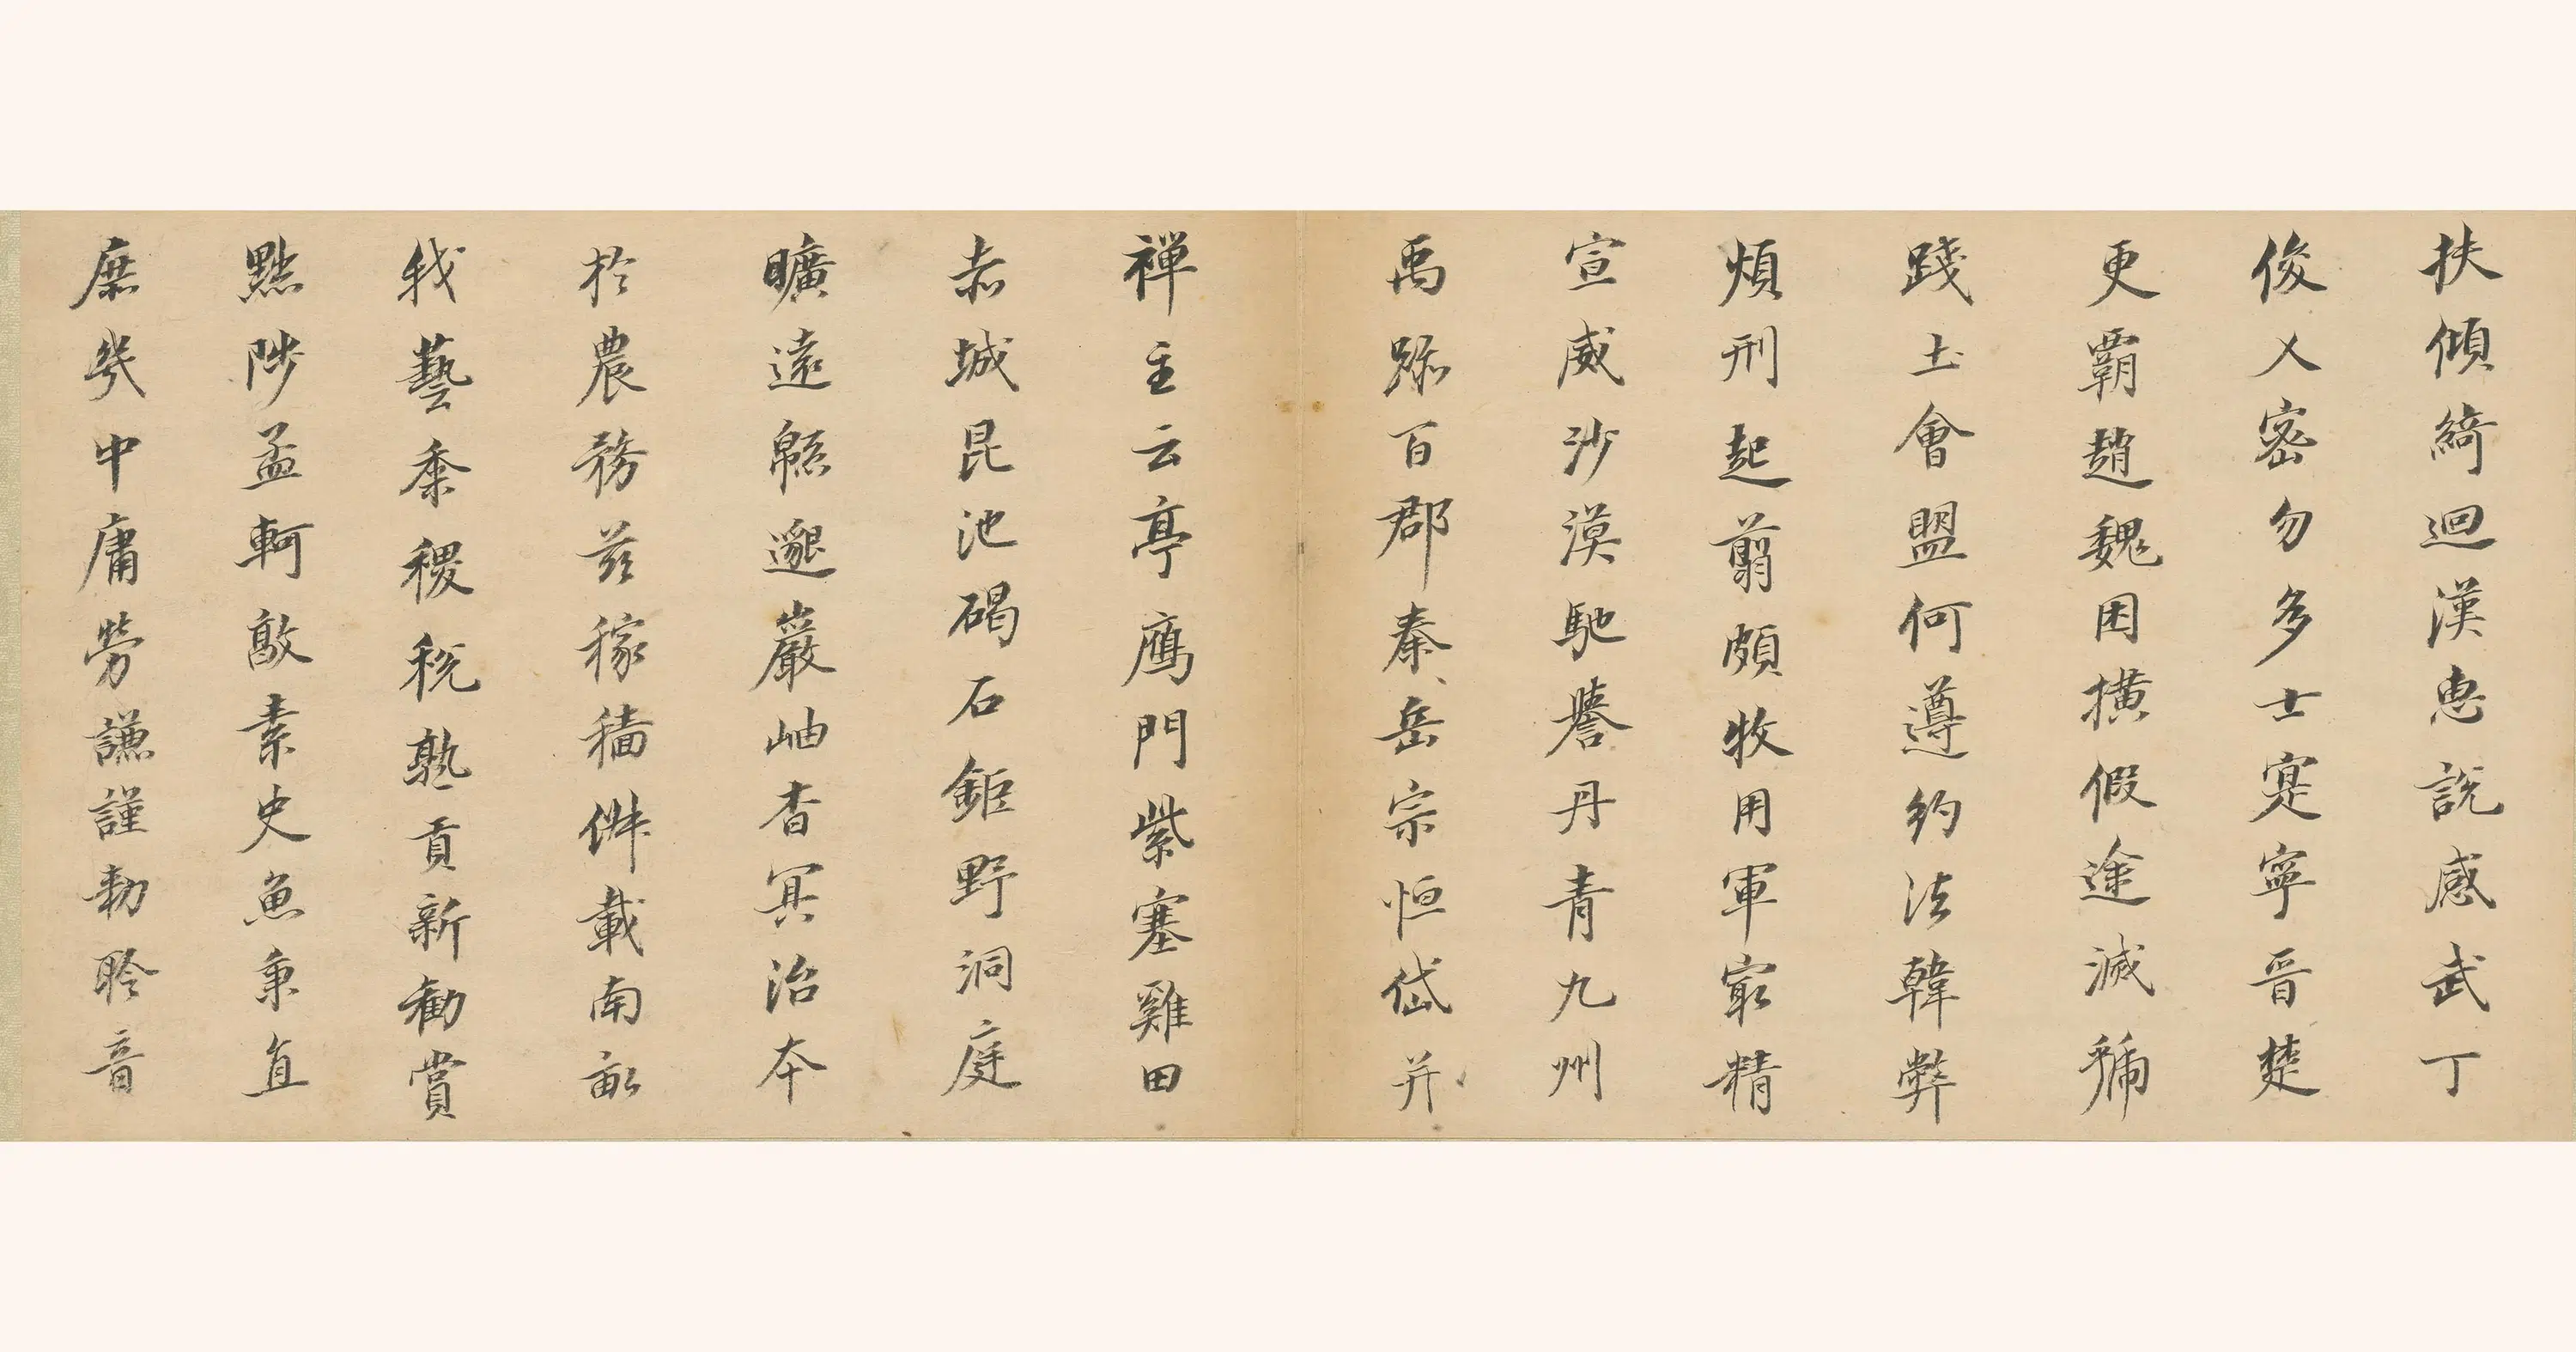 扶傾綺迴漢惠說感武丁
俊乂密勿多士寔寧晉楚
更霸趙魏困橫假途滅虢
踐土會盟何遵約法韓弊
煩刑起翦頗牧用軍最精
宣威沙漠馳譽丹青九州
禹跡百郡秦岳宗恒岱并
禪主云亭鴈門紫塞雞田
赤城昆池碣石鉅野洞庭
曠遠緜邈巖岫杳冥治本
於農務茲稼穡俶載南畝
我藝黍稷稅熟貢新勸賞
黜陟孟軻敦素史魚秉直
庶幾中庸勞謙謹勅聆音